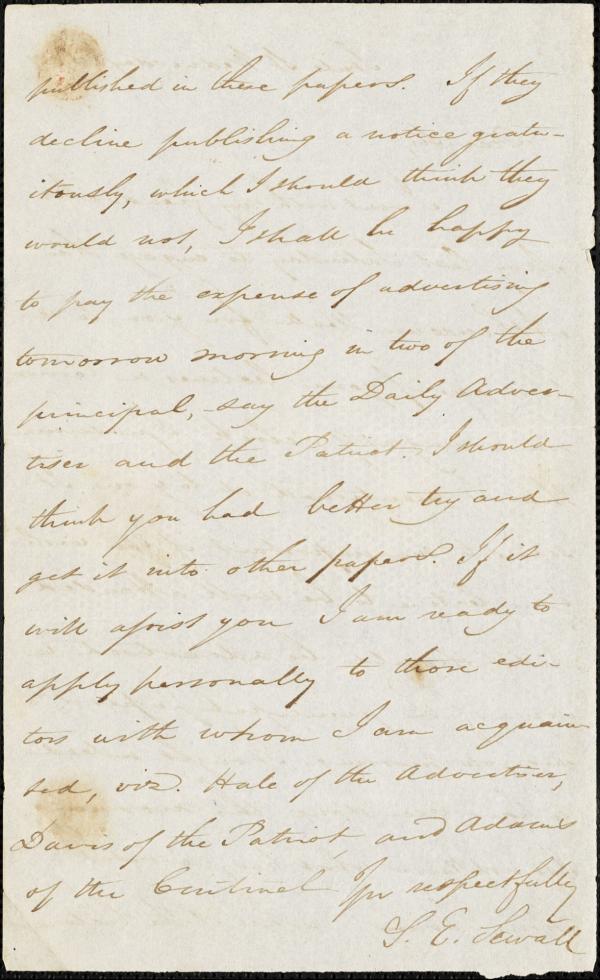 published in these papers. If they
decline publishing a notice gratu-
itously, which I should think they
would not, I shall be happy
to pay the expense of advertising
tomorrow morning in two of the
principal, say the Daily Adver-
tiser and the Patriot. I should
think you had better try and
get it into other papers. If it
will assist you I am ready to
apply personally to those edi-
tors with whom I am acquain-
ted, viz. Hale of the Advertiser,
Davis of the Patriot, and Adams
of the Centinel Yrs respectfully
S. E. Sewall